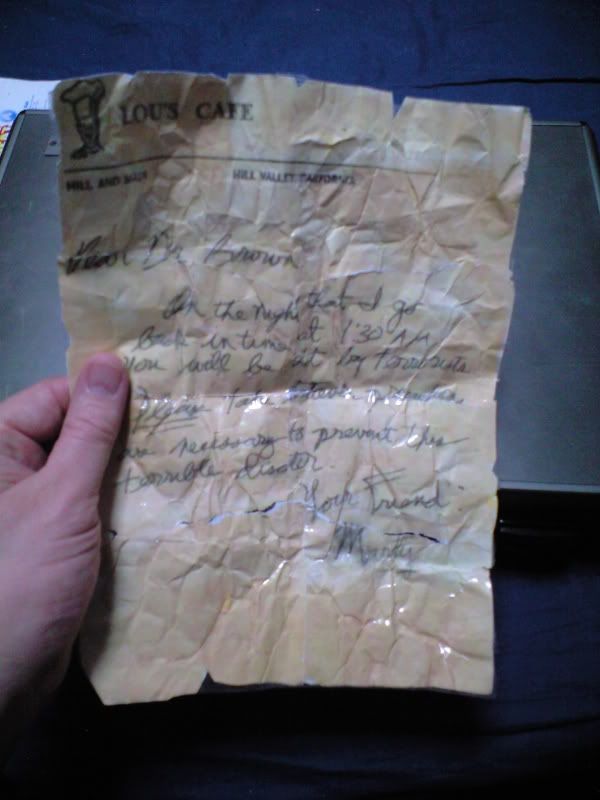 LOU'S CAFE
HILL AND MAIN HILL VALLEY CALIFORNIA
Dear Dr. Brown
On the night that I go
back in time at 1:30 AM
you will be shot by terrorists
Please take whatever precautions
are necessary to prevent this
terrible disaster.
Your Friend
Marty